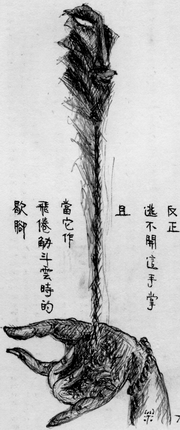 反正
逃不開這手掌
且
當它作
飛倦觔斗雲時的
歇腳